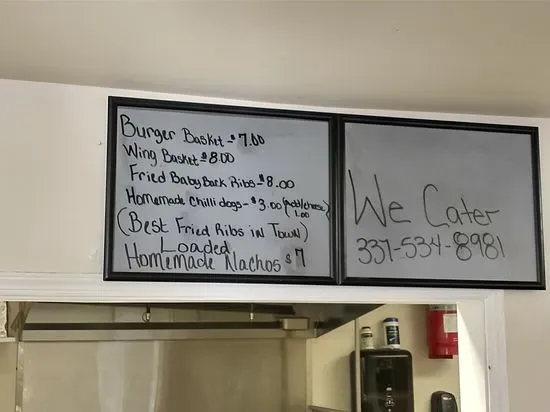 Burger Basket - $7.00
Wing Basket $8.00
Fried Baby Back Ribs - $8.00
Homemade Chilli dogs - $3.00 (add cheese 1.00)
(Best Fried Ribs in Town)
Loaded
Homemade Nachos $7
We Cater
337-534-8981